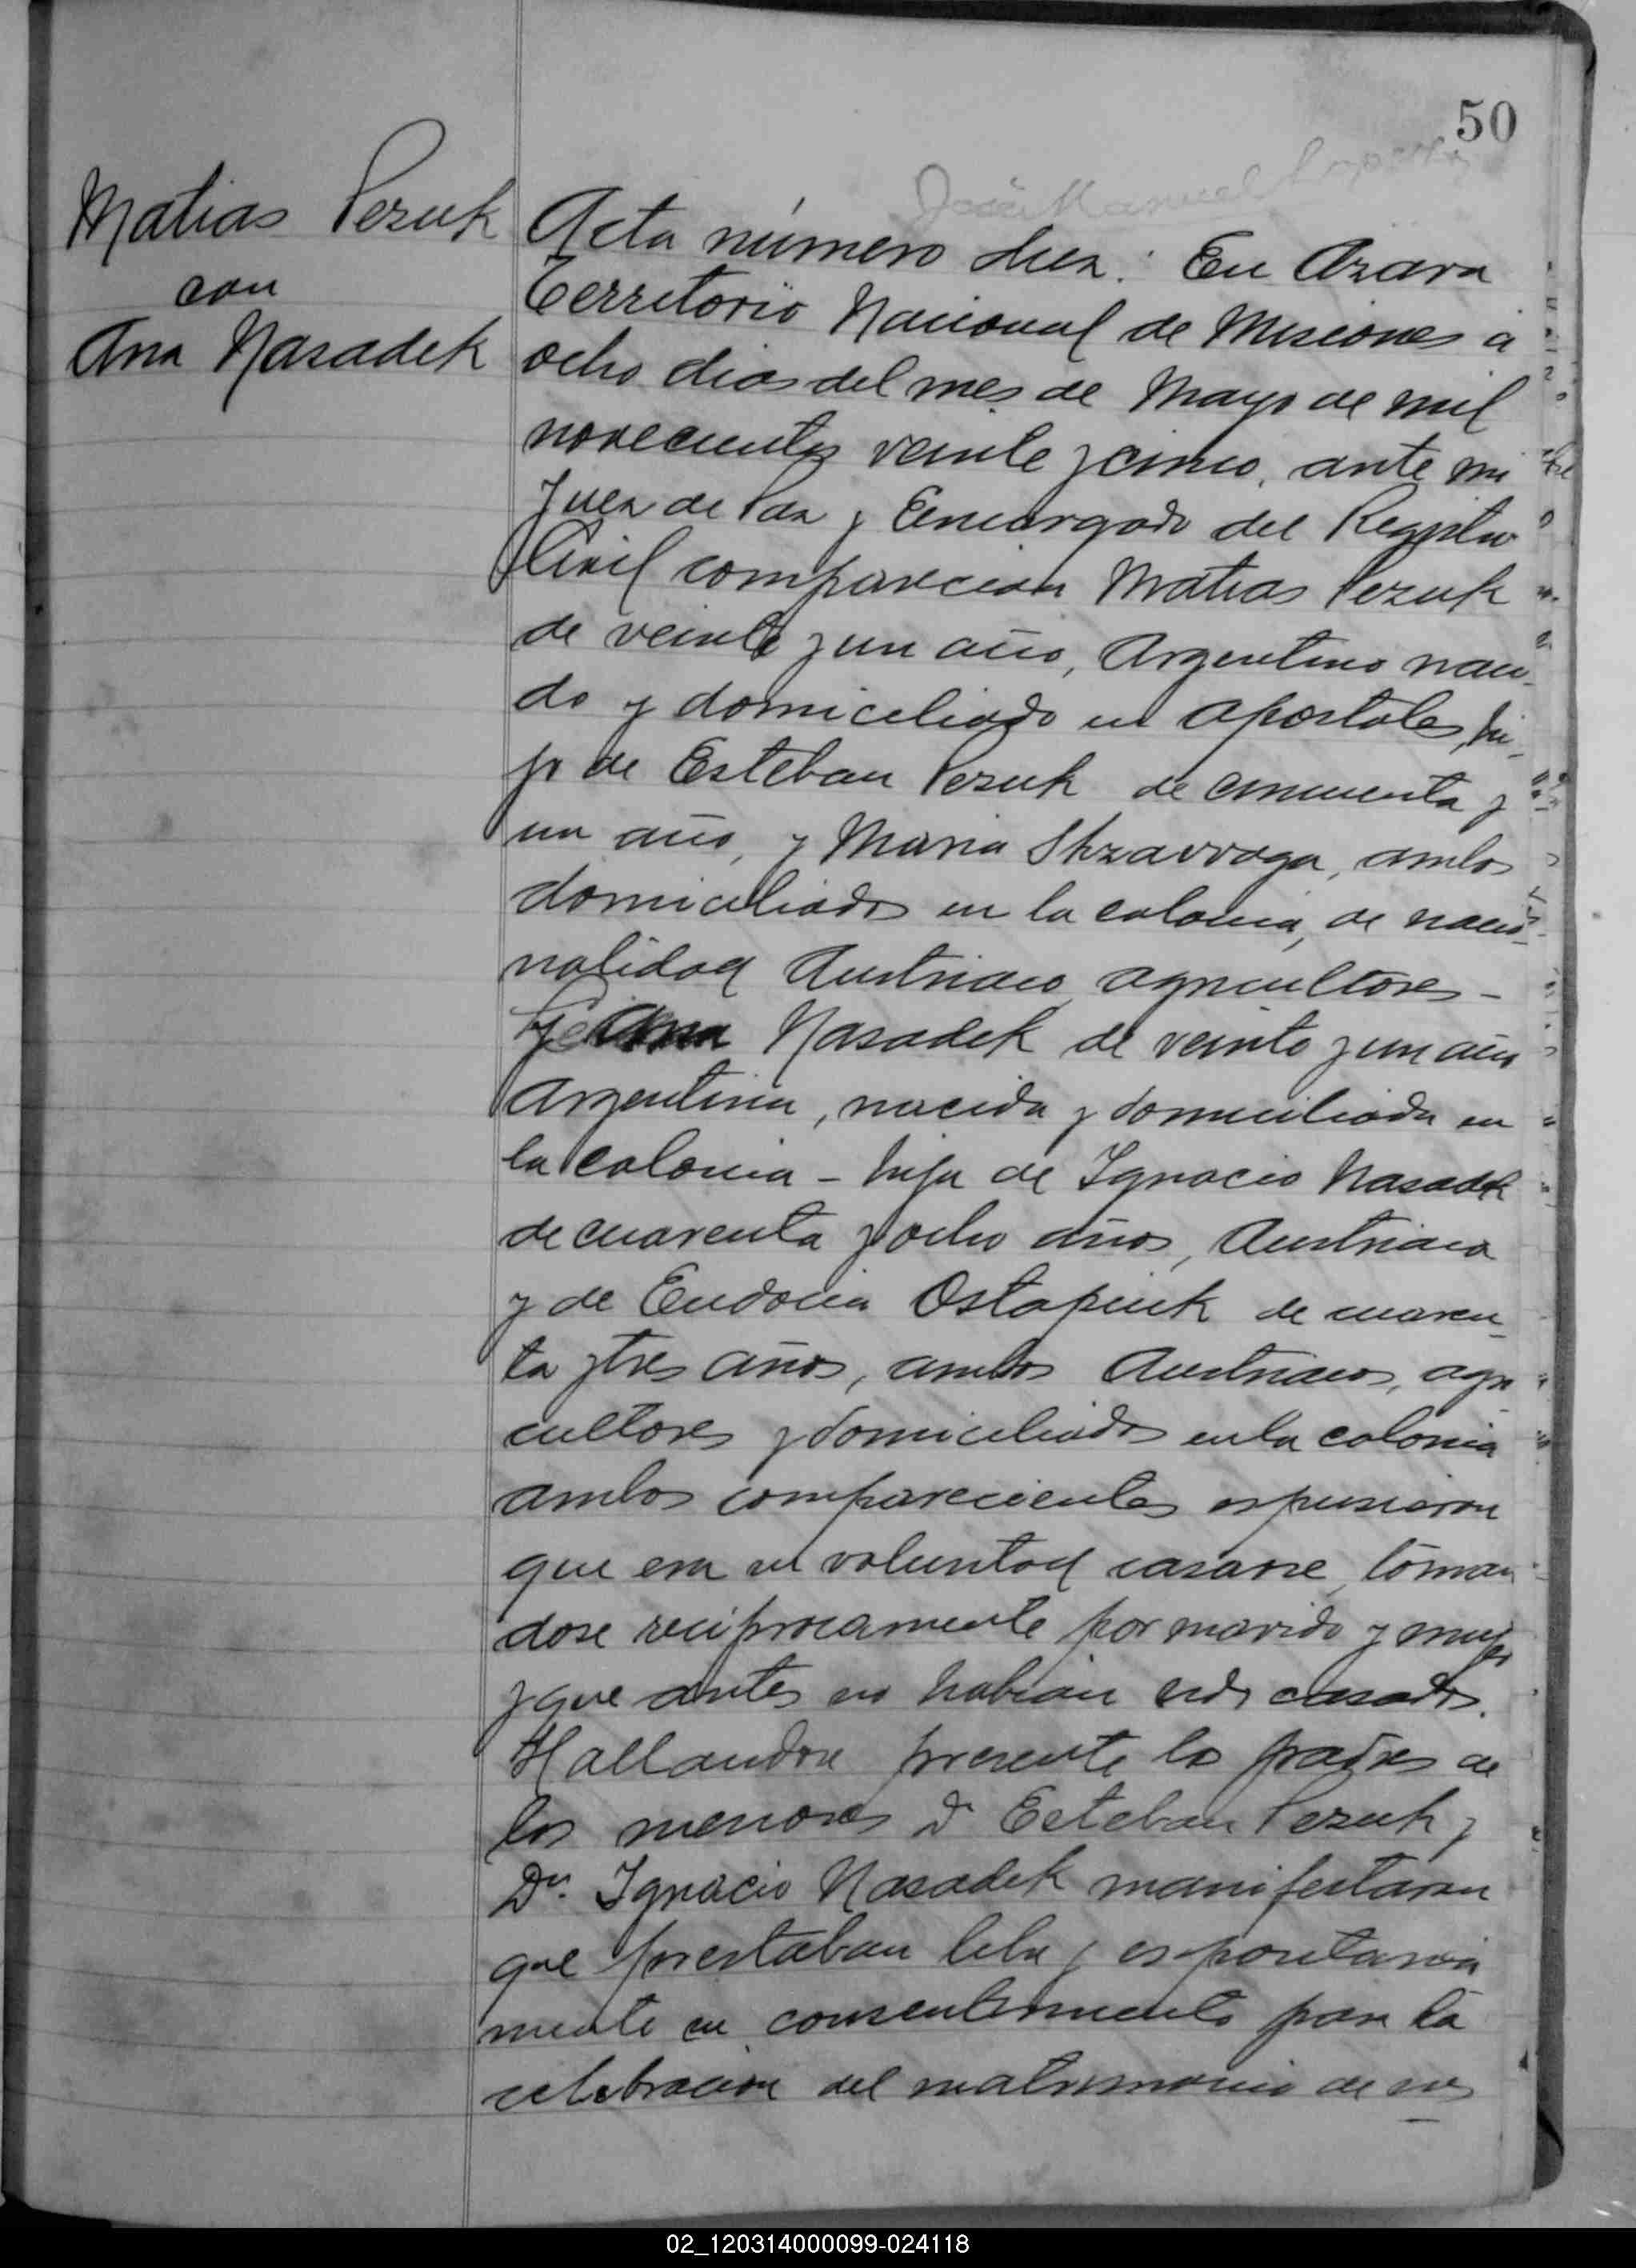 50
Matias Pezuk
con
Ana Nasadek
Acta número diez: En Azara
Territorio Nacional de Misiones á
ocho dias del mes de Mayo de mil
novecientos veinte y cinco, ante mi
Juez de Paz y Encargado del Registro
Civil comparecian Matias Pezuk
de veinte y un año, Argentino naci-
do y domiciliado en Apostoles, hi-
jo de Esteban Pezuk de cincuenta y
un año, y Maria Skzarroga, ambos
domiciliados en la colonia, de nacio-
nalidad Austriaco agricultores -
y Ana Nasadek de veinte y un año
Argentina, nacida y domiciliada en
la colonia - hija de Ignacio Nasadek
de cuarenta y ocho años, Austriaco
y de Eudocia Ostapiuk de cuaren-
ta y tres años, ambos Austriacos, agri
cultores y domiciliados en la colonia
ambos comparecientes espusieron
que era su voluntad casarse, toman
dose reciprocamente por marido y mujer
y que antes no habian sido casados.
Hallandose presente los padres de
los menores Dn Esteban Pezuk y
Dn. Ignacio Nasadek manifestaron
que prestaban libre y espontania
mente su consentimiento para la
celebracion del matrimonio de sus
02_120314000099-024118